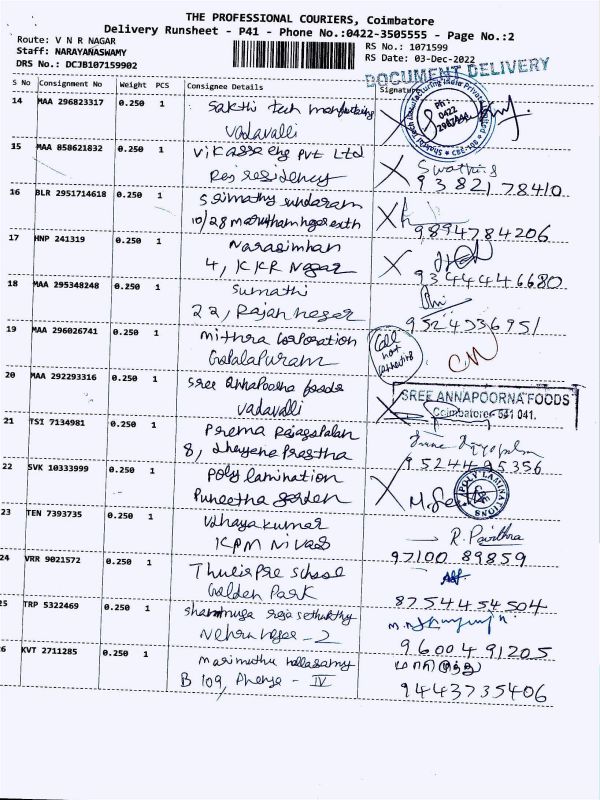 THE PROFESSIONAL COURIERS, Coimbatore
Delivery Runsheet - P41 - Phone No.:0422-3505555 - Page No.:2
Route: V N R NAGAR
Staff: NARAYANASWAMY
DRS No.: DCJB107159902
RS No.: 1071599
RS Date: 03-Dec-2022
DOCUMENT DELIVERY
S No Consignment No Weight PCS Consignee Details Signature
14 MAA 296823317 0.250 1 Sakthi tech
Vadavalli
Ph: 0422
15 MAA 858621832 0.250 1 Vikassa eng Pvt Ltd
Raj residency
Swathi
93821 78410
16 BLR 2951714618 0.250 1 Srimathy Sundaram
10/28
9894784206
17 HNP 241319 0.250 1 Narasimhan
4, KKR Nagar
9344446680
18 MAA 295348248 0.250 1 Sumathi
22, Rajan nagar
19 MAA 296026741 0.250 1 Mithra Corporation
Call not
CM
20 MAA 292293316 0.250 1 Sree Annapoorna foods
Vadavalli
SREE ANNAPOORNA FOODS
Coimbatore - 641 041.
21 TSI 7134981 0.250 1 Prema Rajagopalan
8,
22 SVK 10333999 0.250 1 Poly lamination
Puneetha Garden
POLY LAMINATIONS
23 TEN 7393735 0.250 1 Vijayakumar
KPM Nivas
R. Pavithra
97100 89859
24 VRR 9021572 0.250 1 Thulir Pre School
Golden Park
87544 54504
25 TRP 5322469 0.250 1 Shanmuga raja
Nehru nagar - 2
96004 91205
26 KVT 2711285 0.250 1 Marimuthu
B 109, - IV
மாரிமுத்து
9443735406